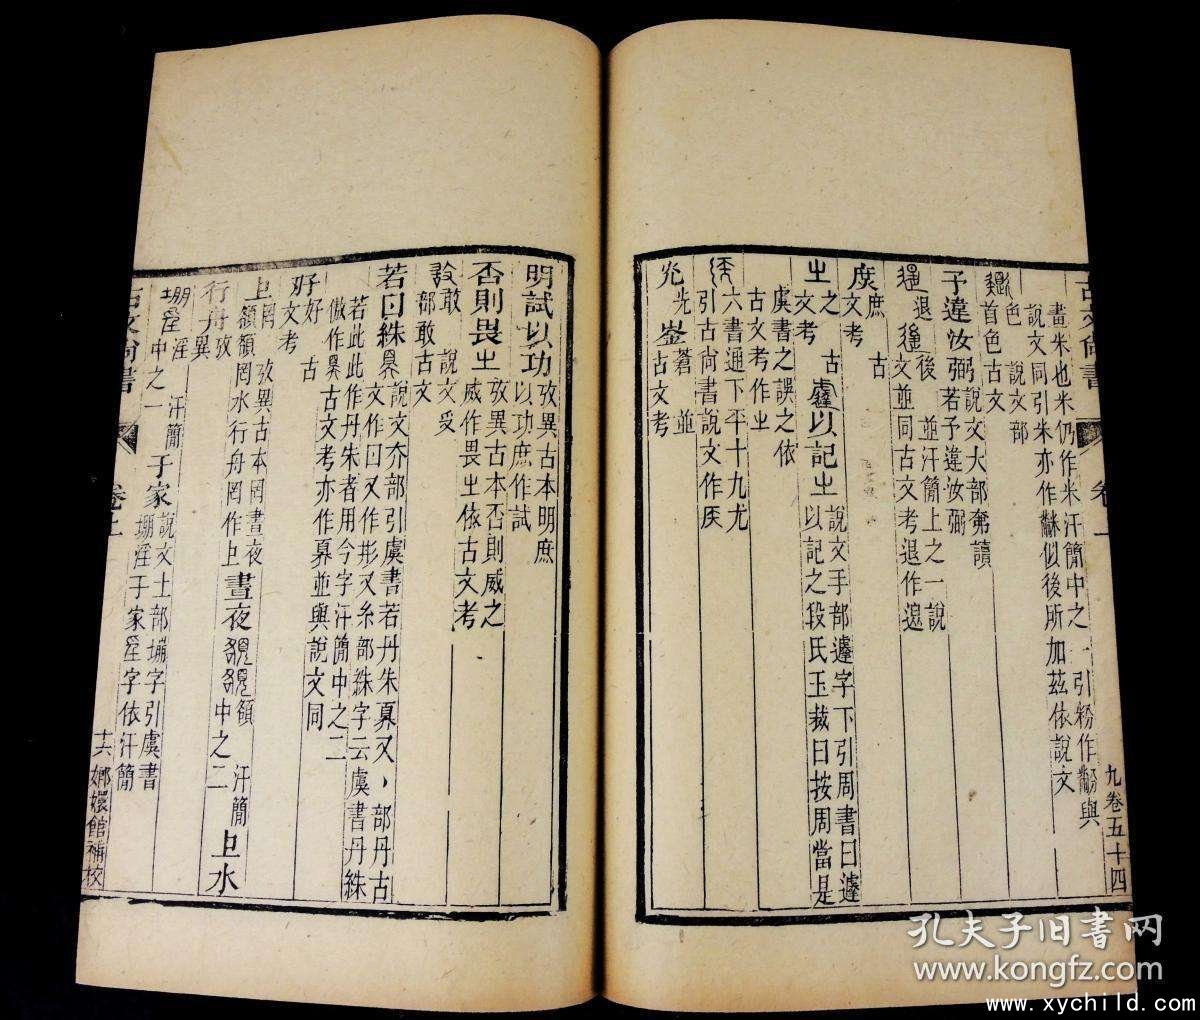 古文尚書
卷上
九卷五十四
畫米也米仍作米汗簡中之一引粉作黺與
說文同引米亦作䋛似後所加茲依說文
色 說文部
首色古文
予違汝弼 說文大部奔讀
若予違汝弼
退 後 並汗簡上之一說
文並同古文考退作
庶 古
文考
㞢 之 古
文考
以記㞢 說文手部遽字下引周書曰遽
以記之段氏玉裁曰按周當是
虞書之誤之依
古文考作㞢
六書通下平十九尤
引古尚書說文作
光 蒼 並
古文考
明試以功 攷異古本明庶
以功庶作試
否則畏㞢 攷異古本否則威之
威作畏㞢依古文考
敢 說文
部敢古文
若曰絑 說文夰部引虞書若丹朱奡又丶部丹古
文作日又作彤又糸部絑字云虞書丹絑
若此此作丹朱者用今字汗簡中之二
傲作奡古文考亦作奡並與說文同
好 古
文考
罔 攷異古本罔晝夜
頟頟罔水行舟罔作
晝夜 頟 汗簡
中之二
水
行舟 攷
異
堋 淫 汗簡
中之一
于家 說文土部堋字引虞書
堋淫于家淫字依汗簡
古文尚書
卷上
十六 嫏嬛館補校
孔夫子旧书网
www.kongfz.com
www.xychild.com